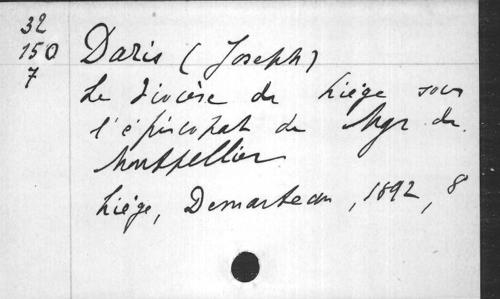 32
150
7
Daris (Joseph)
Le diocèse de Liége sous
l'épiscopat de Mgr de
Montpellier
Liége, Demarteau, 1892, 8